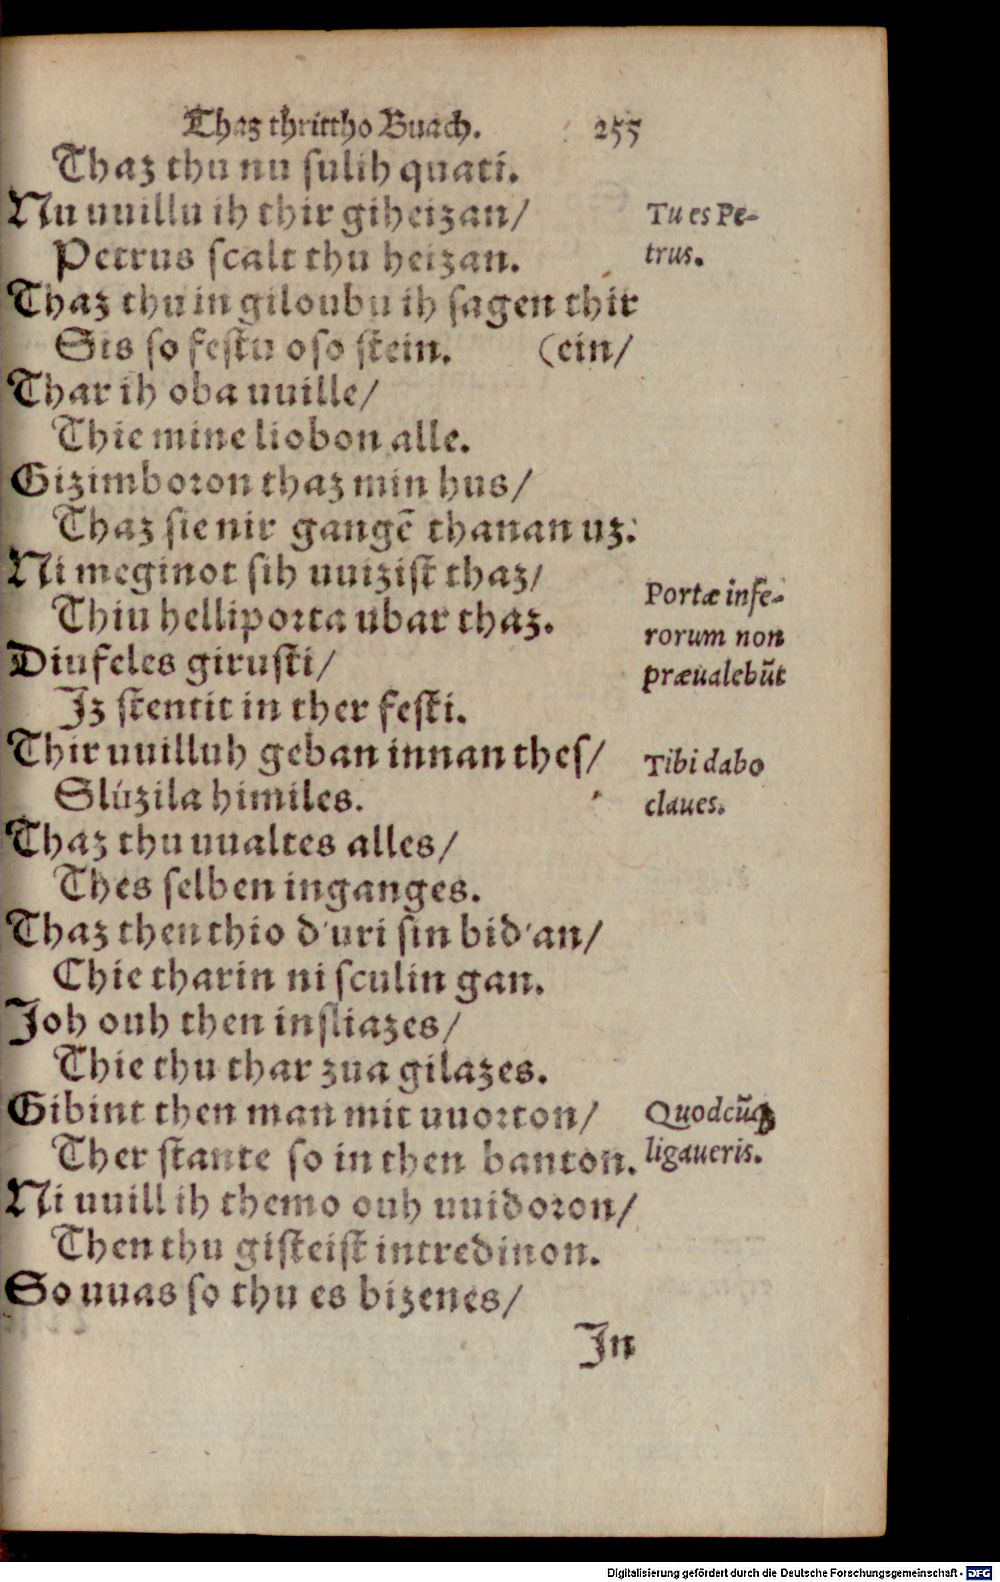 Thaz thrittho Buach. 255
Thaz thu nu ſulih quati.
Nu uuillu ih thir giheizan/
Petrus ſcalt thu heizan.
Tu es Pe-
trus.
Thaz thu in giloubu ih ſagen thir
Sis ſo feſtu oſo ſtein. (ein/
Thar ih oba uuille/
Thie mine liobon alle.
Gizimboꝛon thaz min hus/
Thaz ſie nir gangē thanan uz.
Ni meginot ſih uuiziſt thaz/
Thiu hellipoꝛta ubar thaz.
Portæ infe-
rorum non
præualebūt
Diufeles giruſti/
Iz ſtentit in ther feſti.
Thir uuilluh geban innan theſ/
Slúzila himiles.
Tibi dabo
claues.
Thaz thu uualtes alles/
Thes ſelben inganges.
Thaz then thio d'uri ſin bid'an/
Chie tharin ni ſculin gan.
Joh ouh then inſliazes/
Thie thu thar zua gilazes.
Gibint then man mit uuoꝛton/
Ther ſtante ſo in then banton.
Quodcūq̃
ligaueris.
Ni uuill ih themo ouh uuidoꝛon/
Then thu giſteiſt intredinon.
So uuas ſo thu es bizenes/
In
Digitalisierung gefördert durch die Deutsche Forschungsgemeinschaft - DFG